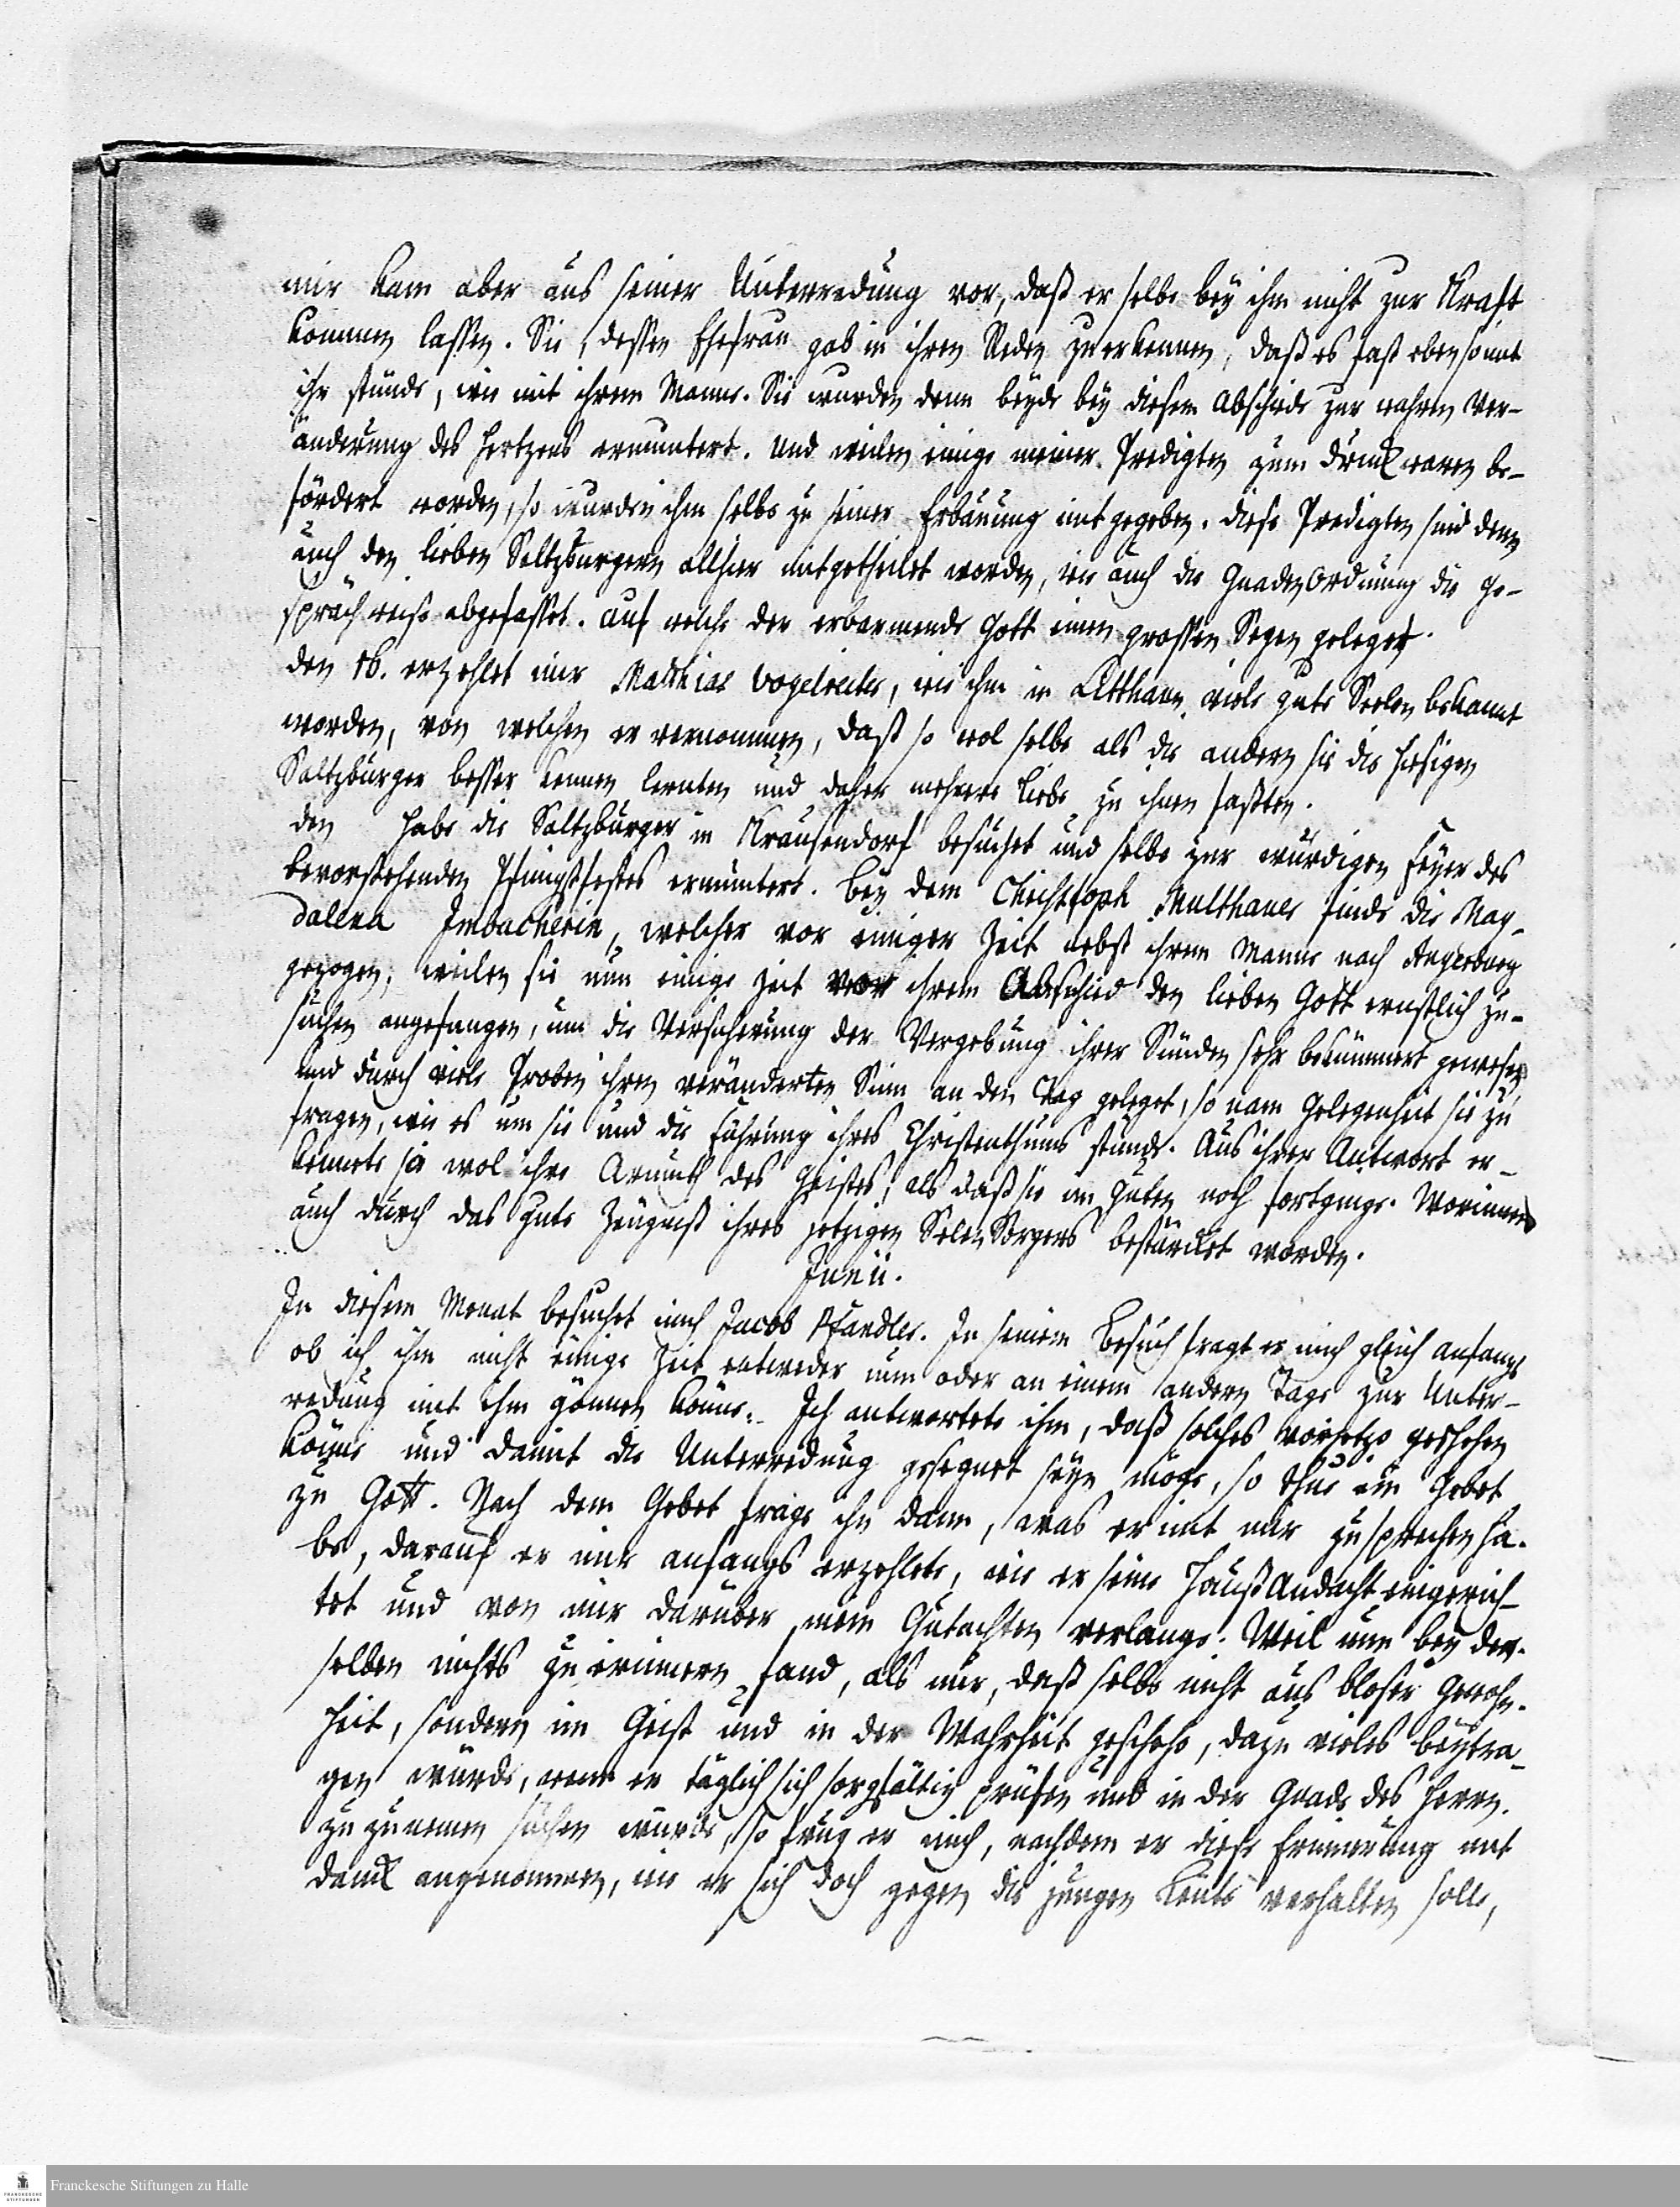 mir kam aber aus seiner Unterredung vor, daß er selbe bey ihm nicht zur Kraft
kommen lassen. Sie, dessen Ehefrau gab in ihren Reden zu erkennen, daß es fast eben so mit
ihr stünde, wie mit ihrem Manne. Sie wurden denn beyde bey diesem Abschiede zur wahren Ver-
änderung des Hertzens ermuntert. Und weilen einige meiner Predigten zum Druck waren be-
fördert worden, so wurden ihm selbe zu seiner Erbauung mit gegeben. Diese Predigten sind denn
auch den lieben Saltzburgern allhier mitgetheilet worden, wie auch die Gnaden Ordnung die ge-
spräch weise abgefasset. Auf welche der erbarmende Gott einen grossen Segen geleget.
den 16. erzehlet mir Matthias Vogelreiter, wie ihm in Litthauen viele gute Seelen bekannt
worden, von welchen er vernommen, daß so wol selbe als die andern sie die hiesigen
Saltzburger besser kennen lernten und daher mehrere Liebe zu ihnen fasseten.
den habe die Saltzburger in Krausendorf besuchet und selbe zur würdigen Feyer des
bevorstehenden Pfingstfestes ermuntert. Bey dem Christoph Multhauer finde die Mag-
dalena Imbacherin, welcher vor einiger Zeit nebst ihrem Manne nach Angerburg
gezogen, weilen sie nun einige Zeit vor ihrem Abschied den lieben Gott ernstlich zu-
suchen angefangen, um die Versicherung der Vergebung ihrer Sünden sehr bekümmert gewesen,
und durch viele Proben ihren veränderten Sinn an den Tag geleget, so nam Gelegenheit sie zu
fragen, wie es um sie und die Führung ihres Christenthums stünde. Aus ihrer Antwort er-
kennete so wol ihre Armuth des Geistes, als daß sie im Guten noch fortginge. Worinnen
auch durch das gute Zeugniß ihres jetzigen Selen Sorgers bestärcket worden.
Junii.
In diesem Monat besuchet mich Jacob Pfandler. In seinem Besuch fragt er mich gleich anfangs
ob ich ihm nicht einige Zeit entweder nun oder an einem andern Tage zur Unter-
redung mit ihm gönnen könne. Ich antwortete ihm, daß solches vorjetzo geschehen
könne und damit die Unterredung gesegnet seyn möge, so thue ein Gebet
zu Gott. Nach dem Gebet frage ihn dann, was er mit mir zu sprechen ha-
be, darauf er mir anfangs erzehlete, wie er seine Hauß Andacht eingerich-
tet und von mir darüber mein Gutachten verlange. Weil nun bey der-
selben nichts zu erinnern fand, als nur, daß selbe nicht aus bloser Gewohn-
heit, sondern im Geist und in der Wahrheit geschehe, dazu vieles beytra-
gen würde, wenn er täglich sich sorgfältig prüfen und in der Gnade des Herrn
zu zunemen suchen würde, so frug er mich, nachdem er diese Erinnerung mit
danck angenommen, wie er sich doch gegen die jungen Leute verhalten solle,
Franckesche Stiftungen zu Halle